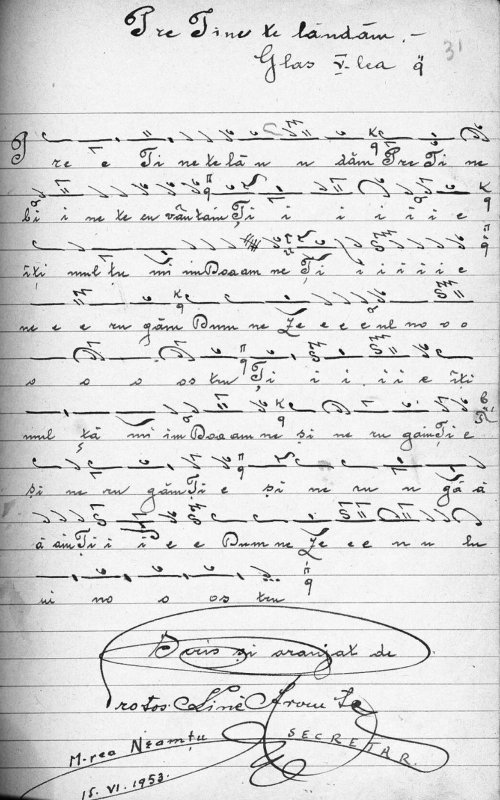 Pre Tine te lăudăm.-
Glas V-lea
31
Pre e Ti ne te lă u u dăm Pre Ti ne
bi i ne te cu vântăm Ți i i i i i e
îți mul țu mi im Doa am ne Ți i i i i i e
ne e e ru găm Dum ne Ze e e e ul no o o
o o o os tru Ți i i i i e îți
mul ță mi im Doa am ne și ne ru găm Ți e
și ne ru găm Ți e și ne ru u gă ă
ă ăm Ți i i e e Dum ne Ze e e u u lu
ui no o os tru
scris și aranjat de
SECRETAR.
M-rea Neamțu
15. VI. 1953.